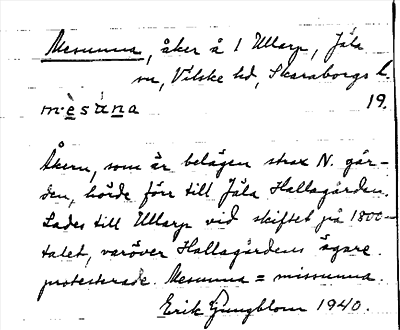 Mesunna, åker å 1 Ullarp, Jäla
sn, Vilske hd, Skaraborgs l.
mèsúna 19.
Åkern, som är belägen strax N. går-
den, hörde förr till Jäla Hallagården.
Lades till Ullarp vid skiftet på 1800-
talet, varöver Hallagårdens ägare
protesterade. Mesunna = missunna.
Erik Ljungblom 1940.